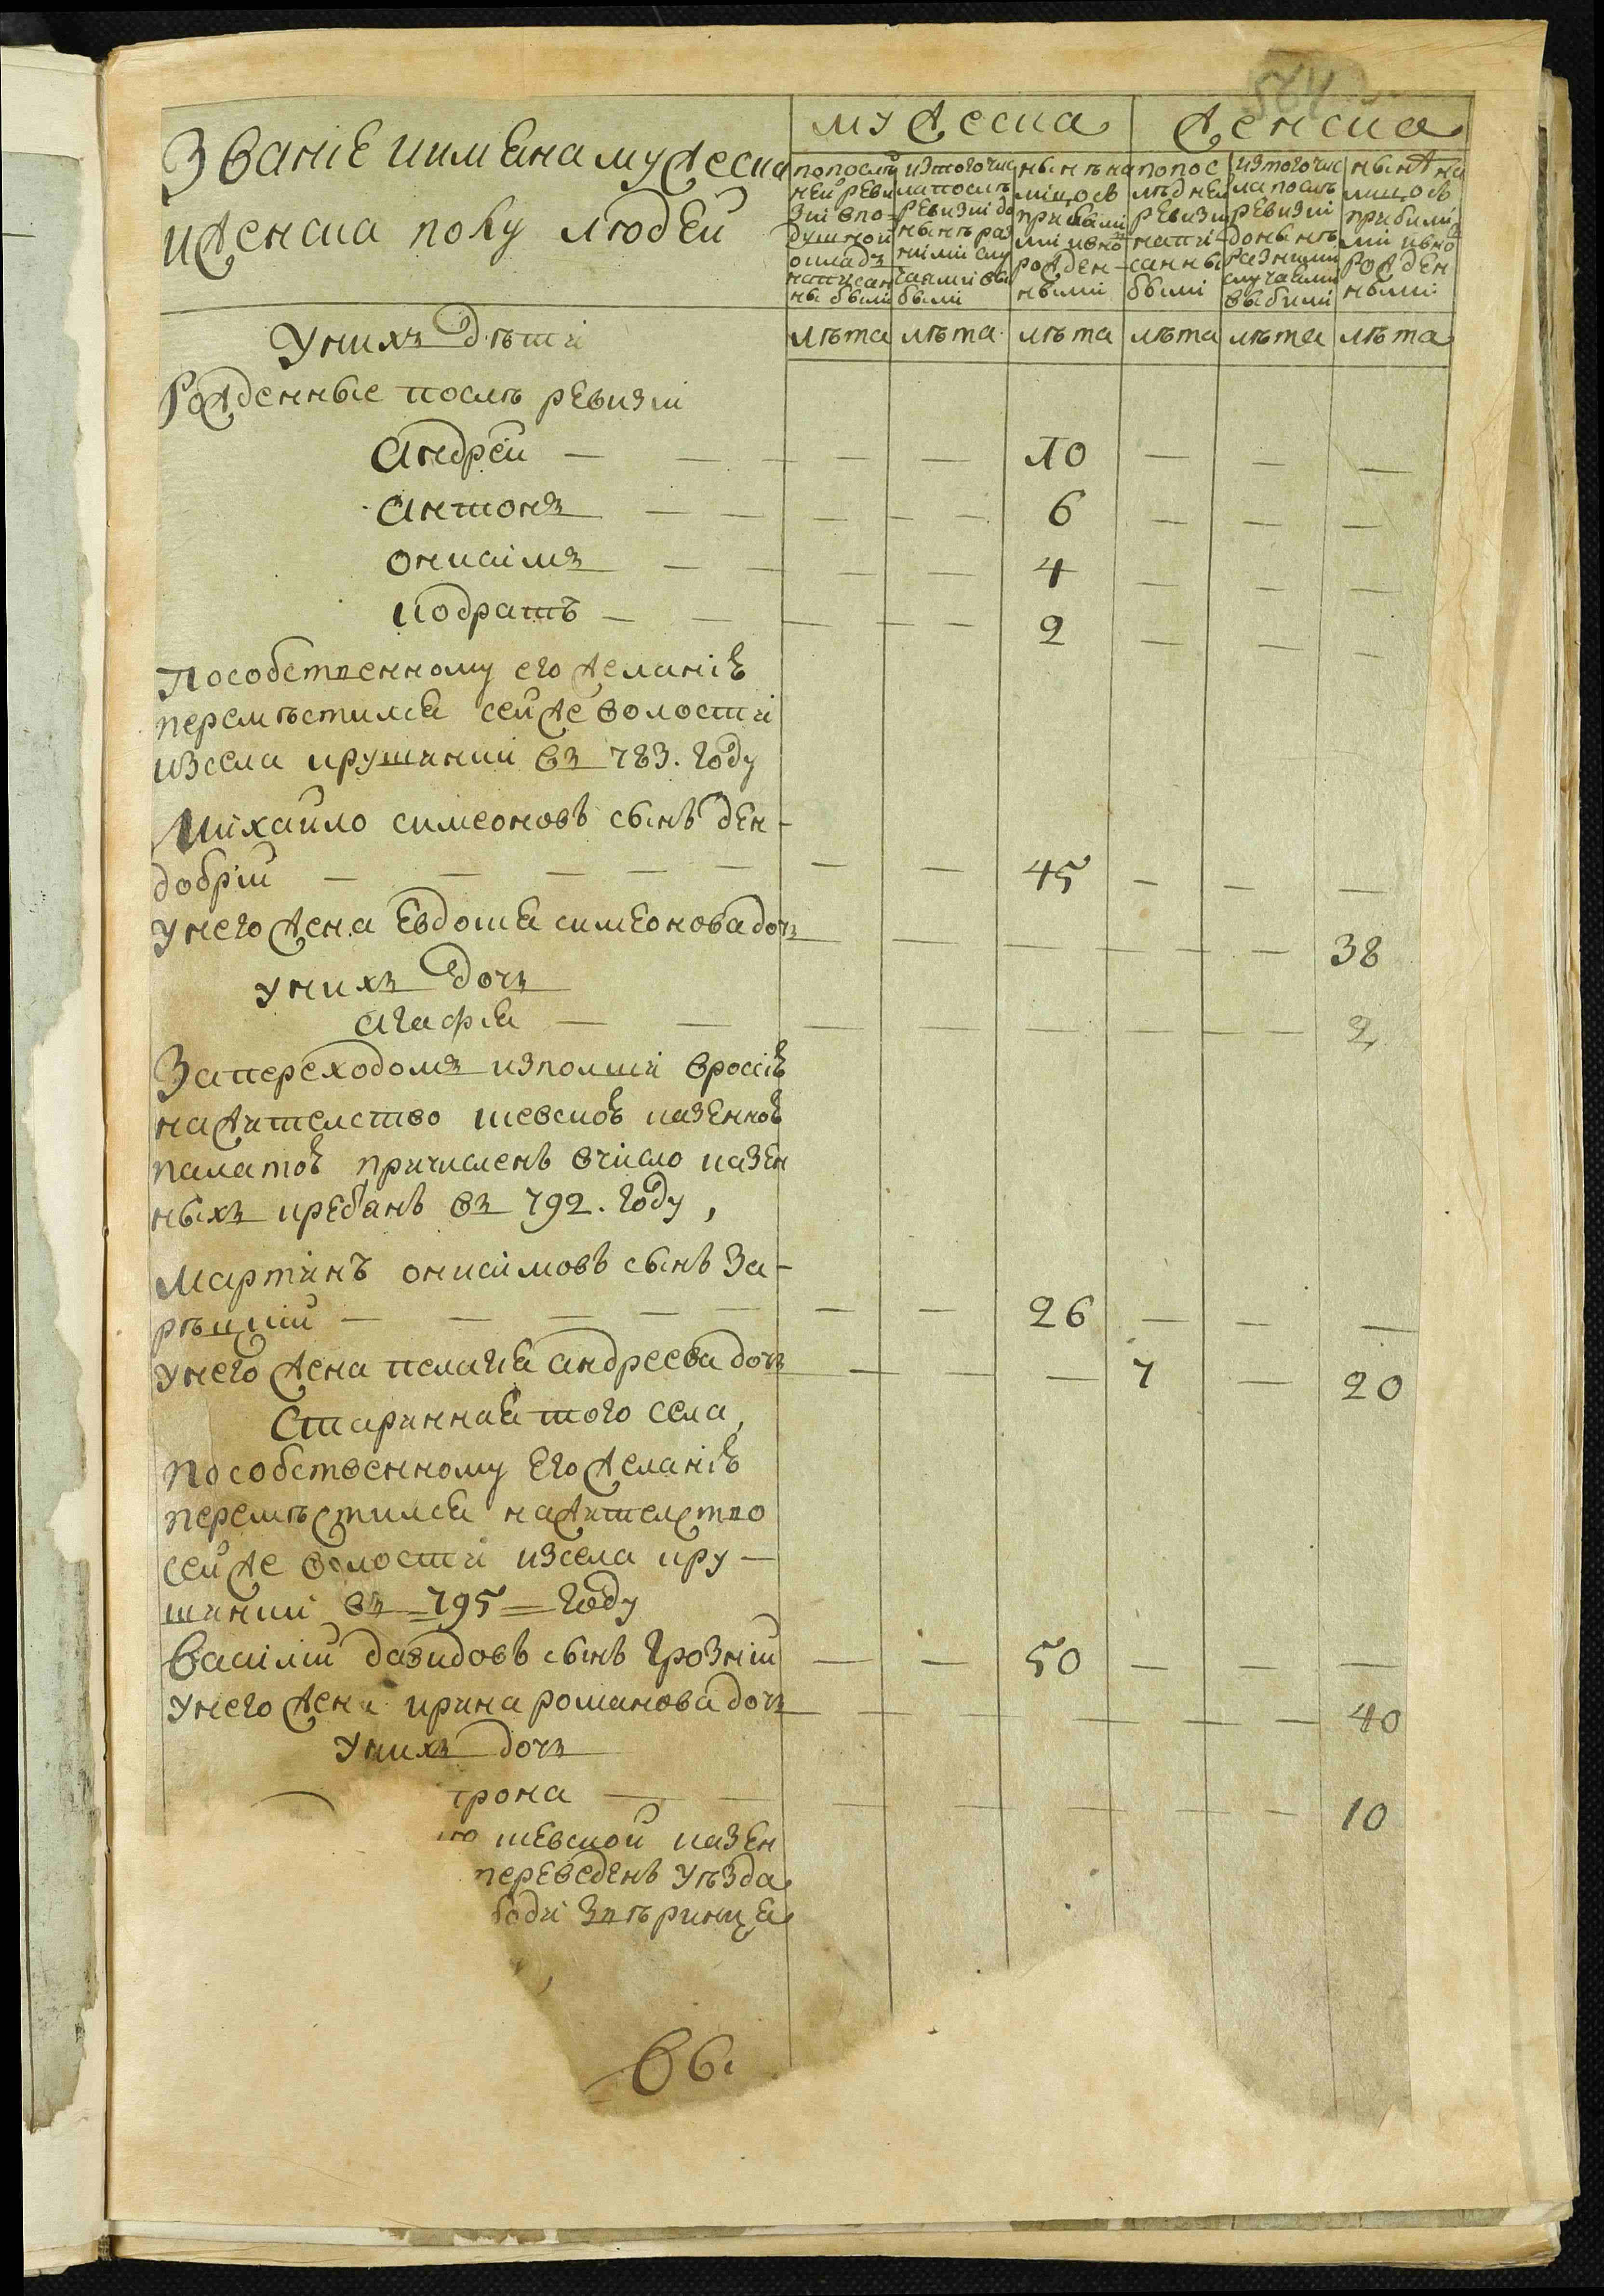 564
Званіе иимена мужеска
иженска полу людей
мужеска
женска
попослѣд
ней реви
зіи впо-
душной
окладъ
написан
ны были
изтогочис
лапослѣ
ревизіи до
нынѣ раз
ними слу
чаями вы
были
нынѣ на
лицо съ
прибылы
ми ивно
рожден-
ными
попос
лѣдней
ревизіи
напи-
санны
были
изтогочис
ла послѣ
ревизіи
донынѣ
разными
случаями
выбыли
нынѣ на
лицо съ
прибылы
ми ивно
рожден
ными
лѣта лѣта лѣта лѣта лѣта лѣта
Унихъ дѣти
Рожденные послѣ ревизіи
Андрей — — — — — 10 — — —
Антонъ — — — — — — 6 — — —
Онисимъ — — — — 4 — — —
Кодратъ — — — — — 2 — — —
Пособственному его желанію
перемѣстился сейже волости
изсела крушинки въ 783. году
Михайло симеоновъ сынъ ден-
добрій — — — — — — — 45 — — —
унего жена Евдокія симеонова дочъ — — — — — — 38
унихъ дочъ
агафія — — — — — — — — 2
Запереходомъ изполши вросію
нажителство киевскою казенною
палатою причисленъ вчисло казен
ныхъ кребянъ въ 792. году,
Мартинъ онисимовъ сынъ За-
рѣцкій — — — — — — — 26 — — —
унего жена пелагія андреева дочъ — — — 7 — 20
Старинная того села,
Пособственному Его желанію
перемѣстился нажителство
сейже волости изсела кру—
шинки въ = 795 = году
Василій давидовъ сынъ Грозній — — 50 — — —
Унего жена ирина романова дочъ — — — — — — 40
Унихъ дочъ
трона — — — — — — — 10
ю киевской казен
переведенъ уѣзда
боди Звѣринца
вы